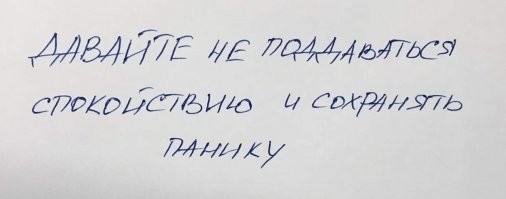 ДАВАЙТЕ НЕ ПОДДАВАТЬСЯ
СПОКОЙСТВИЮ И СОХРАНЯТЬ
ПАНИКУ